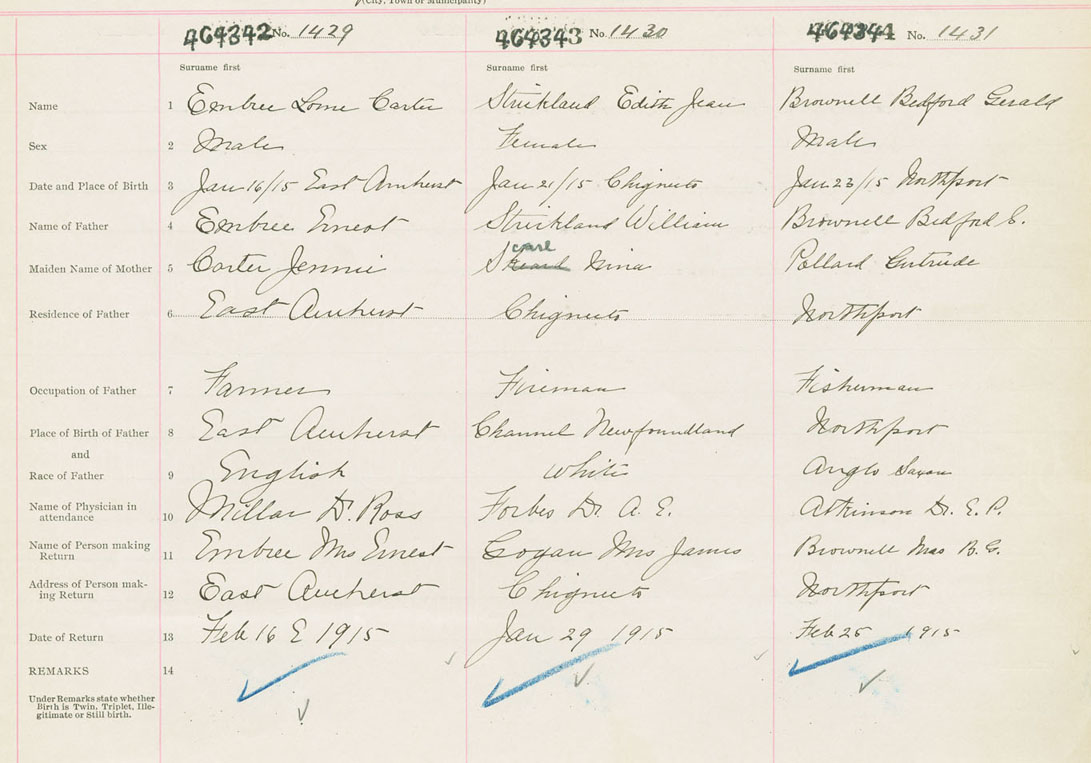 (City, Town or Municipality)
464342 No. 1429 464343 No. 1430 No. 1431
Surname first Surname first Surname first
Name 1 Embree Lorne Carter Strickland Edith Jean Brownell Bedford Gerald
Sex 2 Male Female Male
Date and Place of Birth 3 Jan 16/15 East Amherst Jan 21/15 Chignecto Jan 23/15 Northport
Name of Father 4 Embree Ernest Strickland William Brownell Bedford C.
care
Maiden Name of Mother 5 Carter Jennie Skeard Nina Pollard Gertrude
Residence of Father 6 East Amherst Chignecto Northport
Occupation of Father 7 Farmer Fireman Fisherman
Place of Birth of Father 8 East Amherst Channel Newfoundland Northport
and
Race of Father 9 English White Anglo Saxon
Name of Physician in
attendance 10 Millar Dr. Ross Forbes Dr. A. E. Atkinson Dr. E. P.
Name of Person making
Return 11 Embree Mrs Ernest Cogan Mrs James Brownell Mrs B. G.
Address of Person mak-
ing Return 12 East Amherst Chignecto Northport
Date of Return 13 Feb 16 E 1915 Jan 29 1915 Feb 25 1915
REMARKS 14
Under Remarks state whether
Birth is Twin, Triplet, Ille-
gitimate or Still birth.